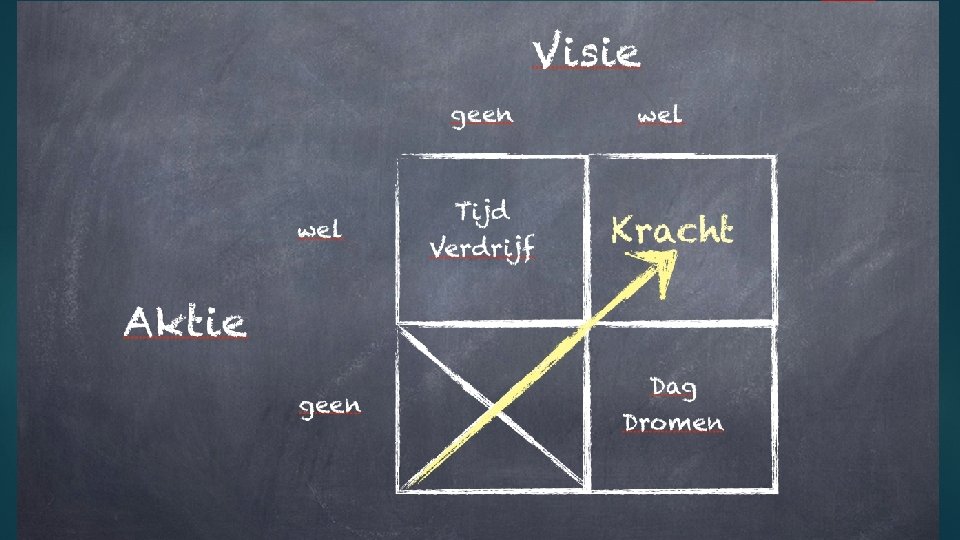 Visie
geen wel
wel
Tijd
Verdrijf
Kracht
Aktie
geen
Dag
Dromen